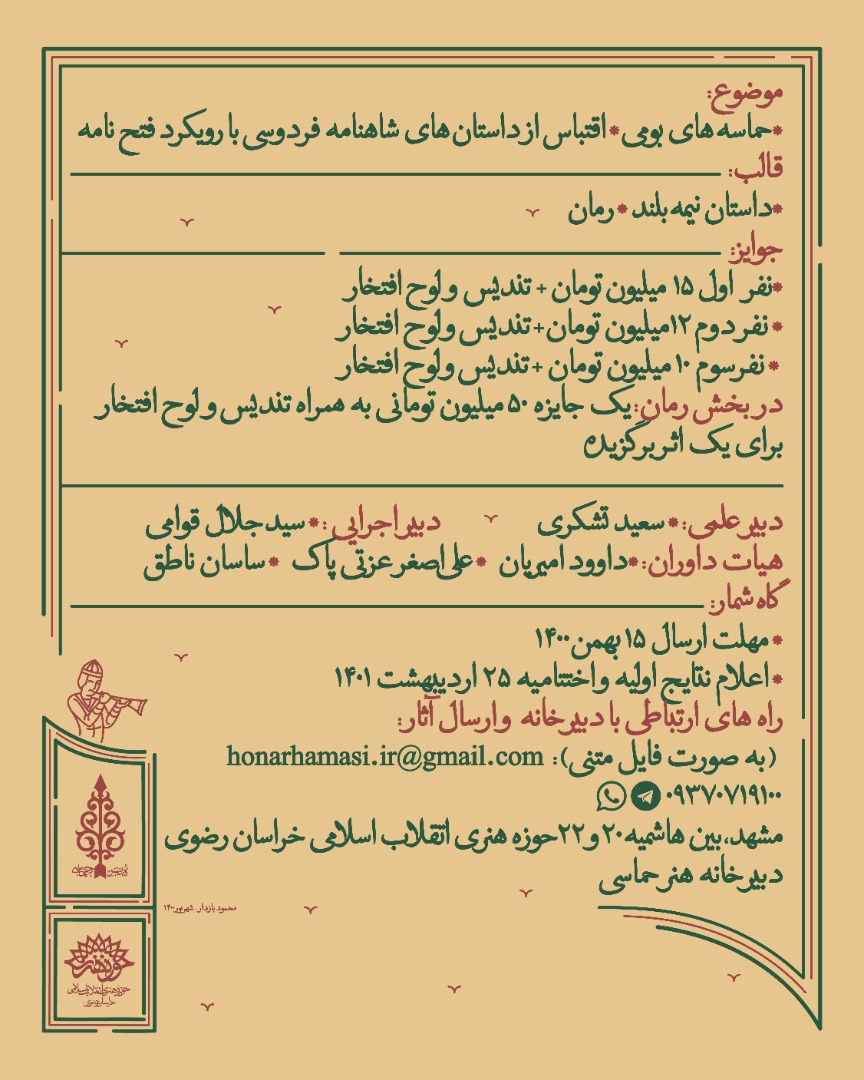 موضوع:
*حماسه های بومی *اقتباس از داستان های شاهنامه فردوسی با رویکرد فتح نامه
قالب:
*داستان نیمه بلند *رمان
جوایز:
*نفر اول ۱۵ میلیون تومان + تندیس و لوح افتخار
*نفر دوم ۱۲میلیون تومان+ تندیس ولوح افتخار
*نفرسوم ۱۰ میلیون تومان + تندیس ولوح افتخار
در بخش رمان: یک جایزه ۵۰ میلیون تومانی به همراه تندیس و لوح افتخار
برای یک اثر برگزیده
دبیر علمی: *سعید تشکری دبیر اجرایی: *سید جلال قوامی
هیات داوران: *داوود امیریان *علی اصغر عزتی پاک *ساسان ناطق
گاه شمار:
*مهلت ارسال ۱۵ بهمن ۱۴۰۰
*اعلام نتایج اولیه و اختتامیه ۲۵ اردیبهشت ۱۴۰۱
راه های ارتباطی با دبیرخانه و ارسال آثار:
(به صورت فایل متنی): honarhamasi.ir@gmail.com
۰۹۳۷۰۷۱۹۱۰۰
مشهد، بین هاشمیه ۲۰ و ۲۲ حوزه هنری انقلاب اسلامی خراسان رضوی
دبیرخانه هنر حماسی
محمود بازدار. شهریور ۱۴۰۰
حوزه هنری
حوزه هنری انقلاب اسلامی
خراسان رضوی